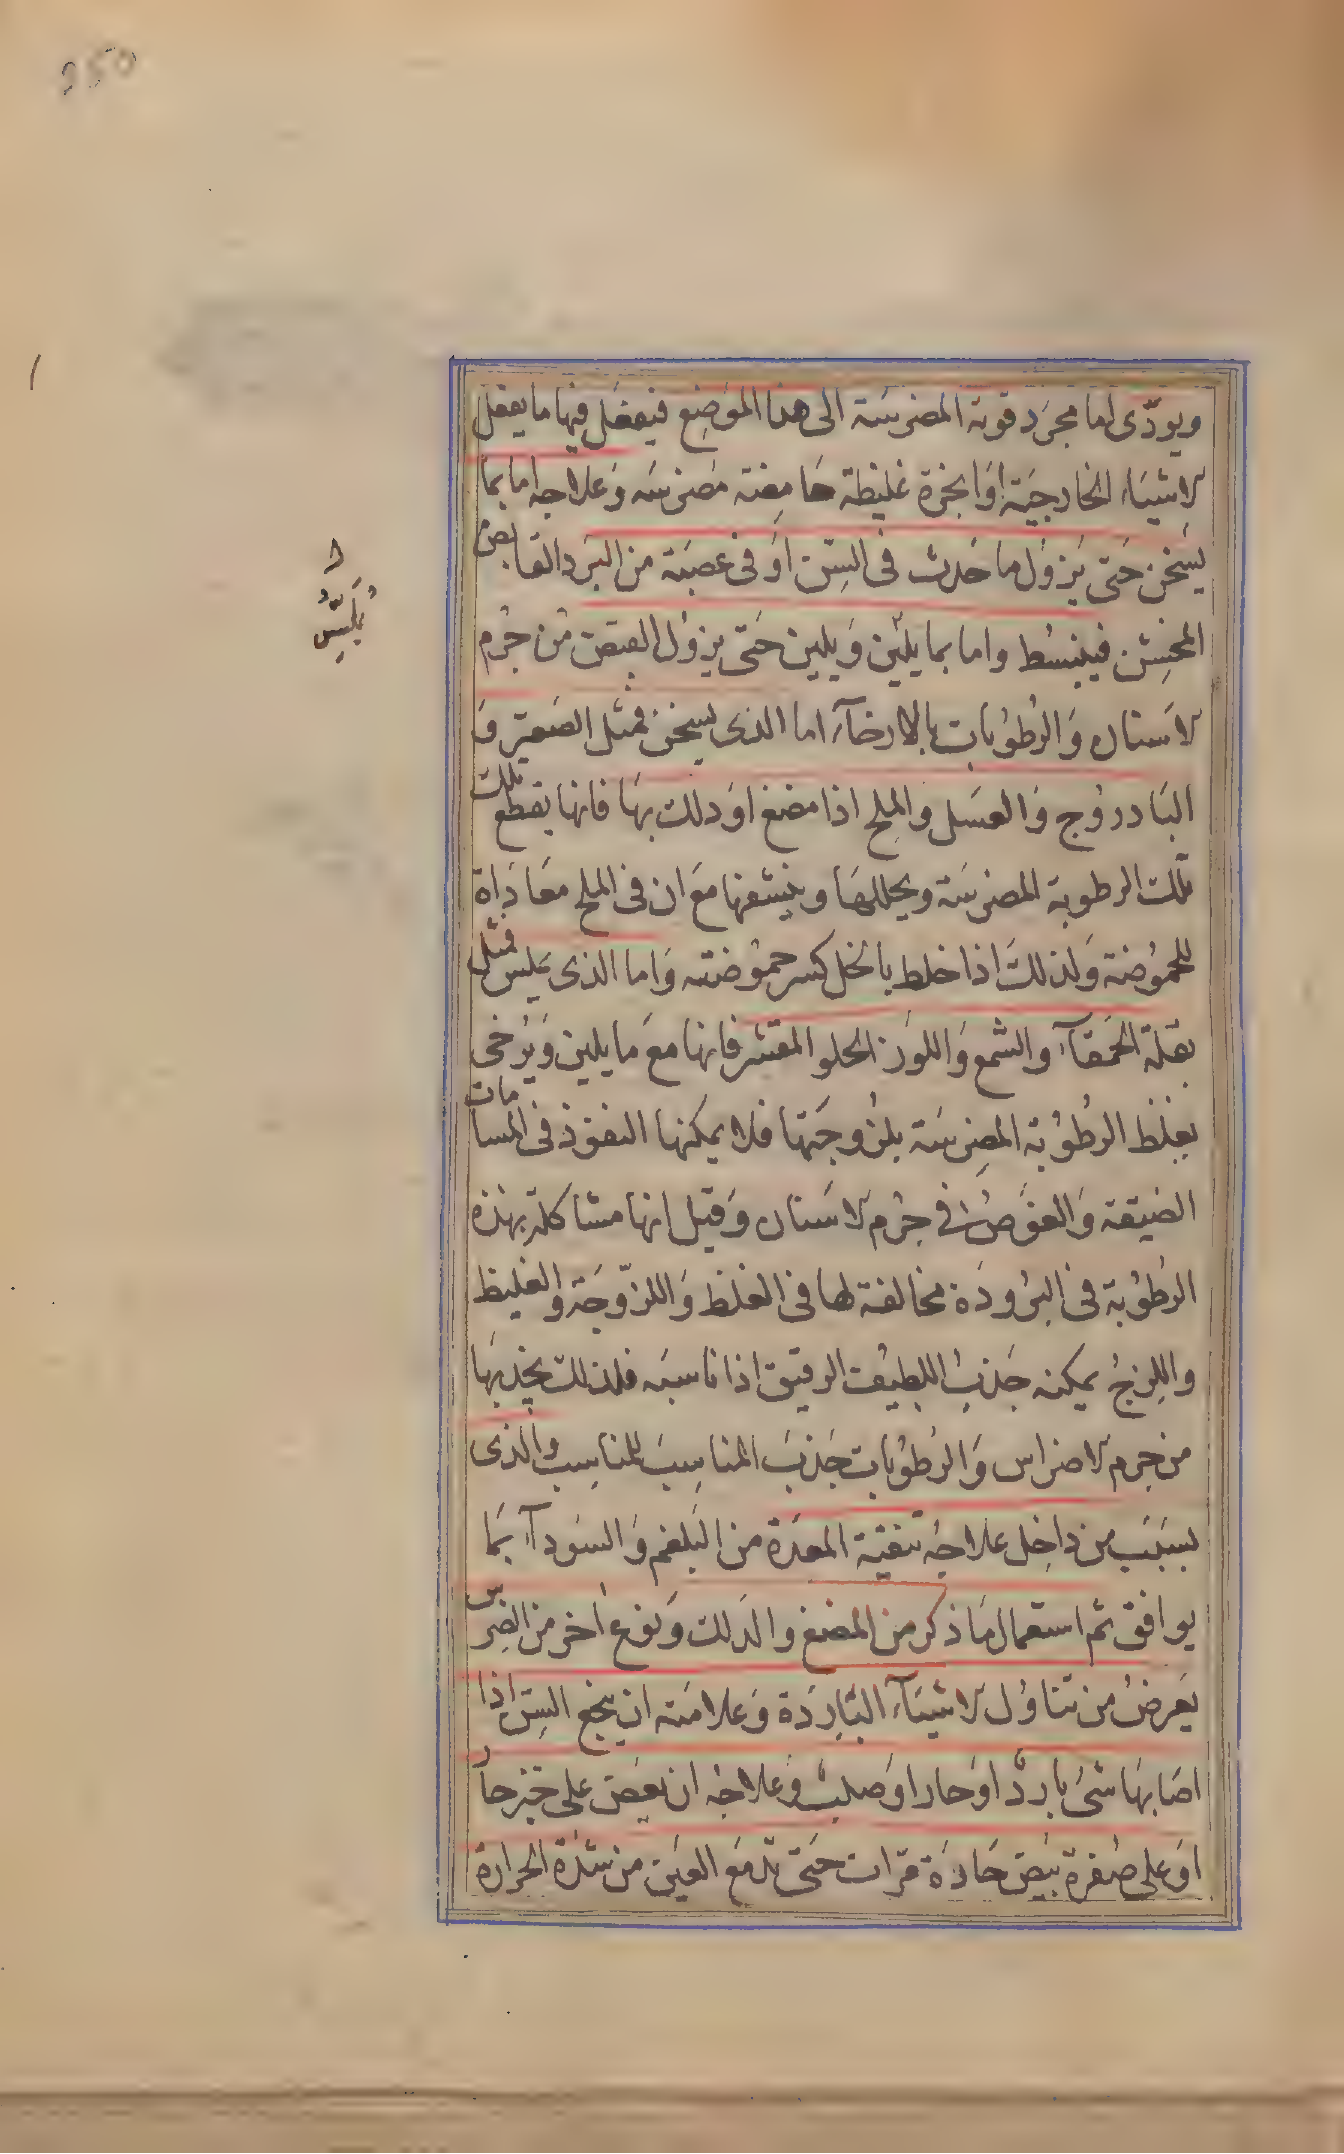 250
ويودّى اما مجرد قوته المضرسة الى هذا الموضع فيفعل فيها ما يفعل
الاشياء الخارجية او ابخرة غليظة حامضة مضرسه وعلاجه اما بما
يسخن حتى يزول ما حدث فى السن او فى عصبة من البرد القابض
المخشن فينبسط واما بما يلين ويلين حتى يزول القبض من جرم
الاسنان والرطوبات بالارخآء اما الذى يسخن فمثل الصعتر و
البادروج والعسل والملح اذا مضغ او دلك بها فانها يقطع تلك
تلك الرطوبة المضرسة ويحللها وينشفها مع ان فى الملح معاداة
للحموضة ولذلك اذا خلط بالخل كسر حموضته واما الذى يملس فمثل
بقلة الحمقآء والشمع واللوز الحلو المقشر فانها مع ما يلين ويرخى
يغلظ الرطوبة المضرسة بلزوجتها فلا يمكنها النفوذ فى المسامات
الضيقة والغوص فى جرم الاسنان وقيل انها مشاكلة بهذه
الرطوبة فى البرودة مخالفة لها فى الغلظ واللزّوجة والغليظ
واللزج يمكنه جذب اللطيف الرقيق اذا ناسبه فلذلك يجذبها
من جرم الاضراس والرطوبات جذب المناسب للمناسب والذى
بسبب من داخل علاجه تنقية المعدة من البلغم والسودآء بما
يوافق ثم استعمال ما ذكر من المضغ والدلك ونوع اخر من الضرس
يعرض من تناول الاشيآء الباردة وعلامته ان يجع السن اذا
اصابها شئ بارد او حار او صلب وعلاجه ان يعض على خبز حار
او على صفرة بيض حارة مرات حتى تدمع العين من شدة الحرارة
يملس